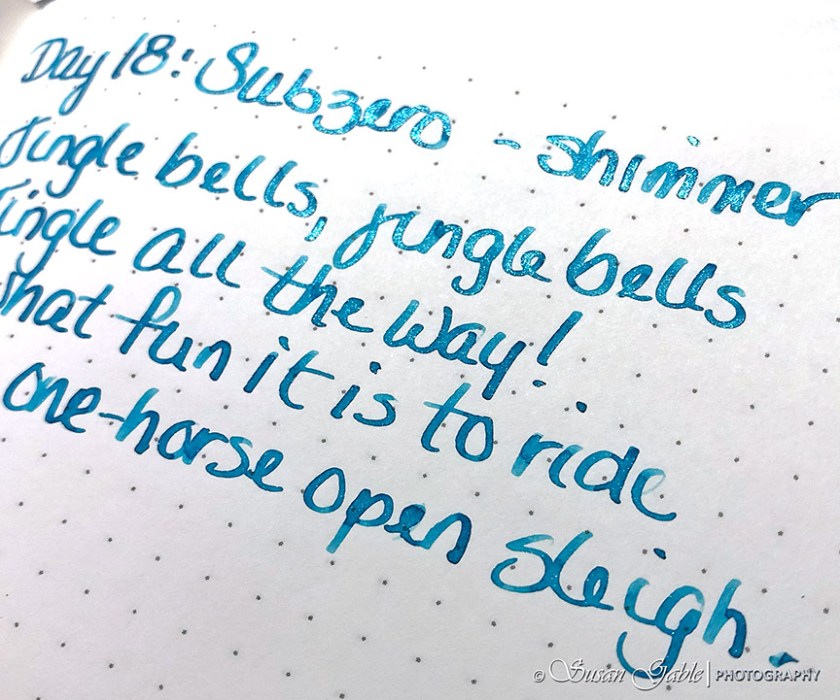 Day 18: Subzero - shimmer
Jingle bells, jingle bells
Jingle all the way!
what fun it is to ride
one-horse open sleigh.
© Susan Gable | PHOTOGRAPHY